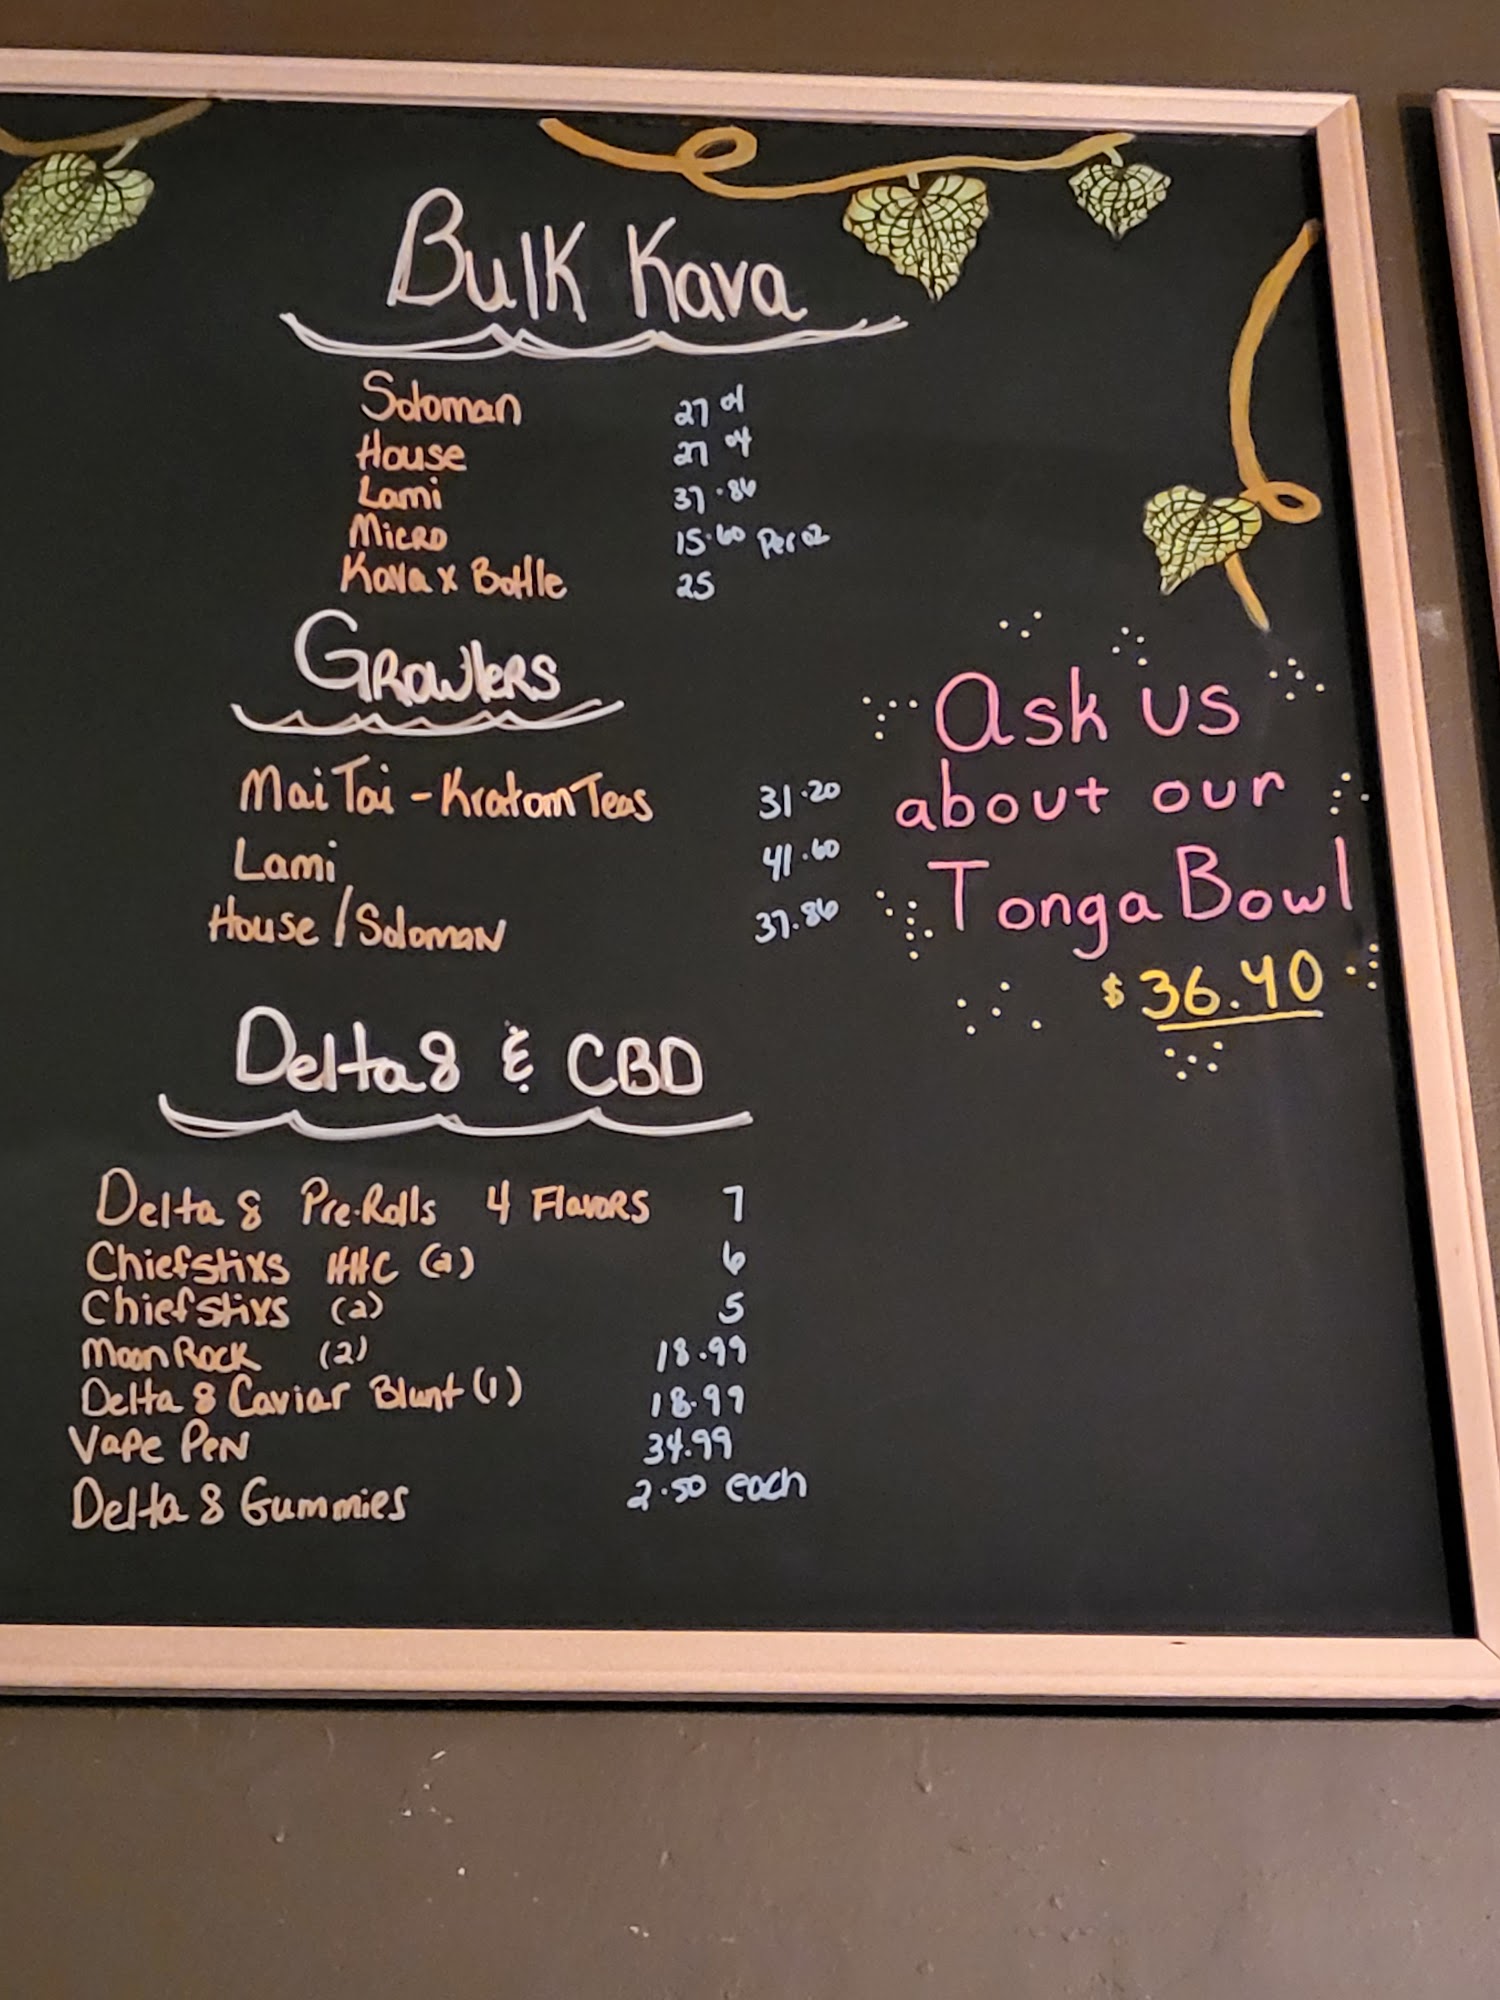 Bulk Kava
Soloman 27 04
House 27 04
Lami 37.86
Micro 15.60 Per oz
Kava x Bottle 25
Growlers
Mai Tai - Kratom Teas 31.20
Lami 41.60
House / Soloman 37.86
Ask us
about our
Tonga Bowl
$36.40
Delta 8 & CBD
Delta 8 Pre-Rolls 4 Flavors 7
Chiefstixs HHC (2) 6
Chiefstixs (2) 5
Moon Rock (2) 18.99
Delta 8 Caviar Blunt (1) 18.99
Vape Pen 34.99
Delta 8 Gummies 2.50 each